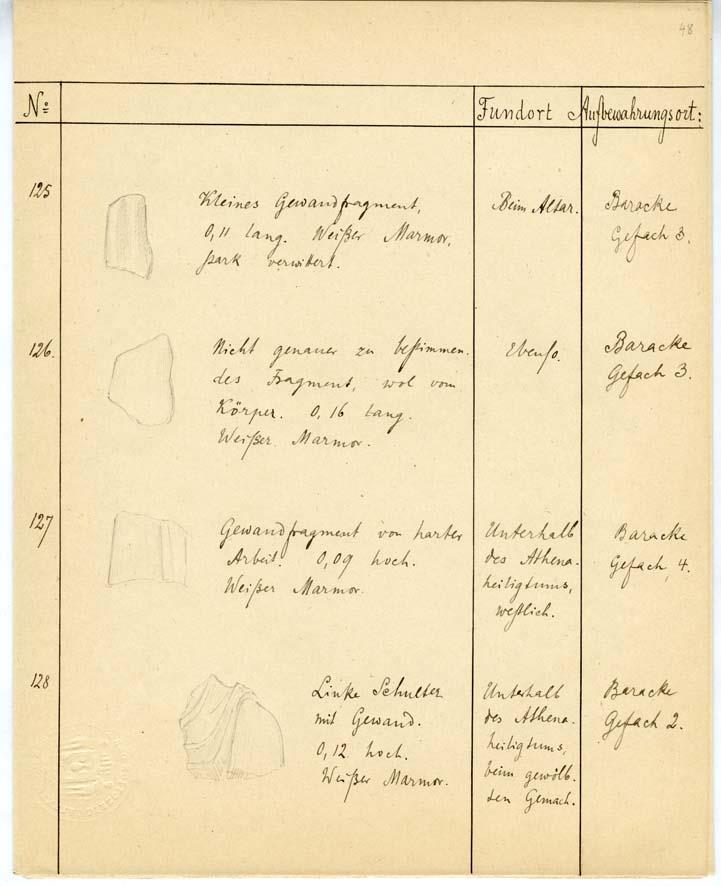 48
No Fundort Aufbewahrungsort:
125
Kleines Gewandfragment,
0,11 lang. Weißer Marmor,
stark verwittert.
Beim Altar.
Baracke
Gefach 3.
126.
Nicht genauer zu bestimmen-
des Fragment, wol vom
Körper. 0,16 lang.
Weißer Marmor.
Ebenso.
Baracke
Gefach 3.
127
Gewandfragment von harter
Arbeit. 0,09 hoch.
Weißer Marmor.
Unterhalb
des Athena-
heiligtums,
westlich.
Baracke
Gefach 4.
128
Linke Schulter
mit Gewand.
0,12 hoch.
Weißer Marmor.
Unterhalb
des Athena-
heiligtums,
beim gewölb-
ten Gemach.
Baracke
Gefach 2.